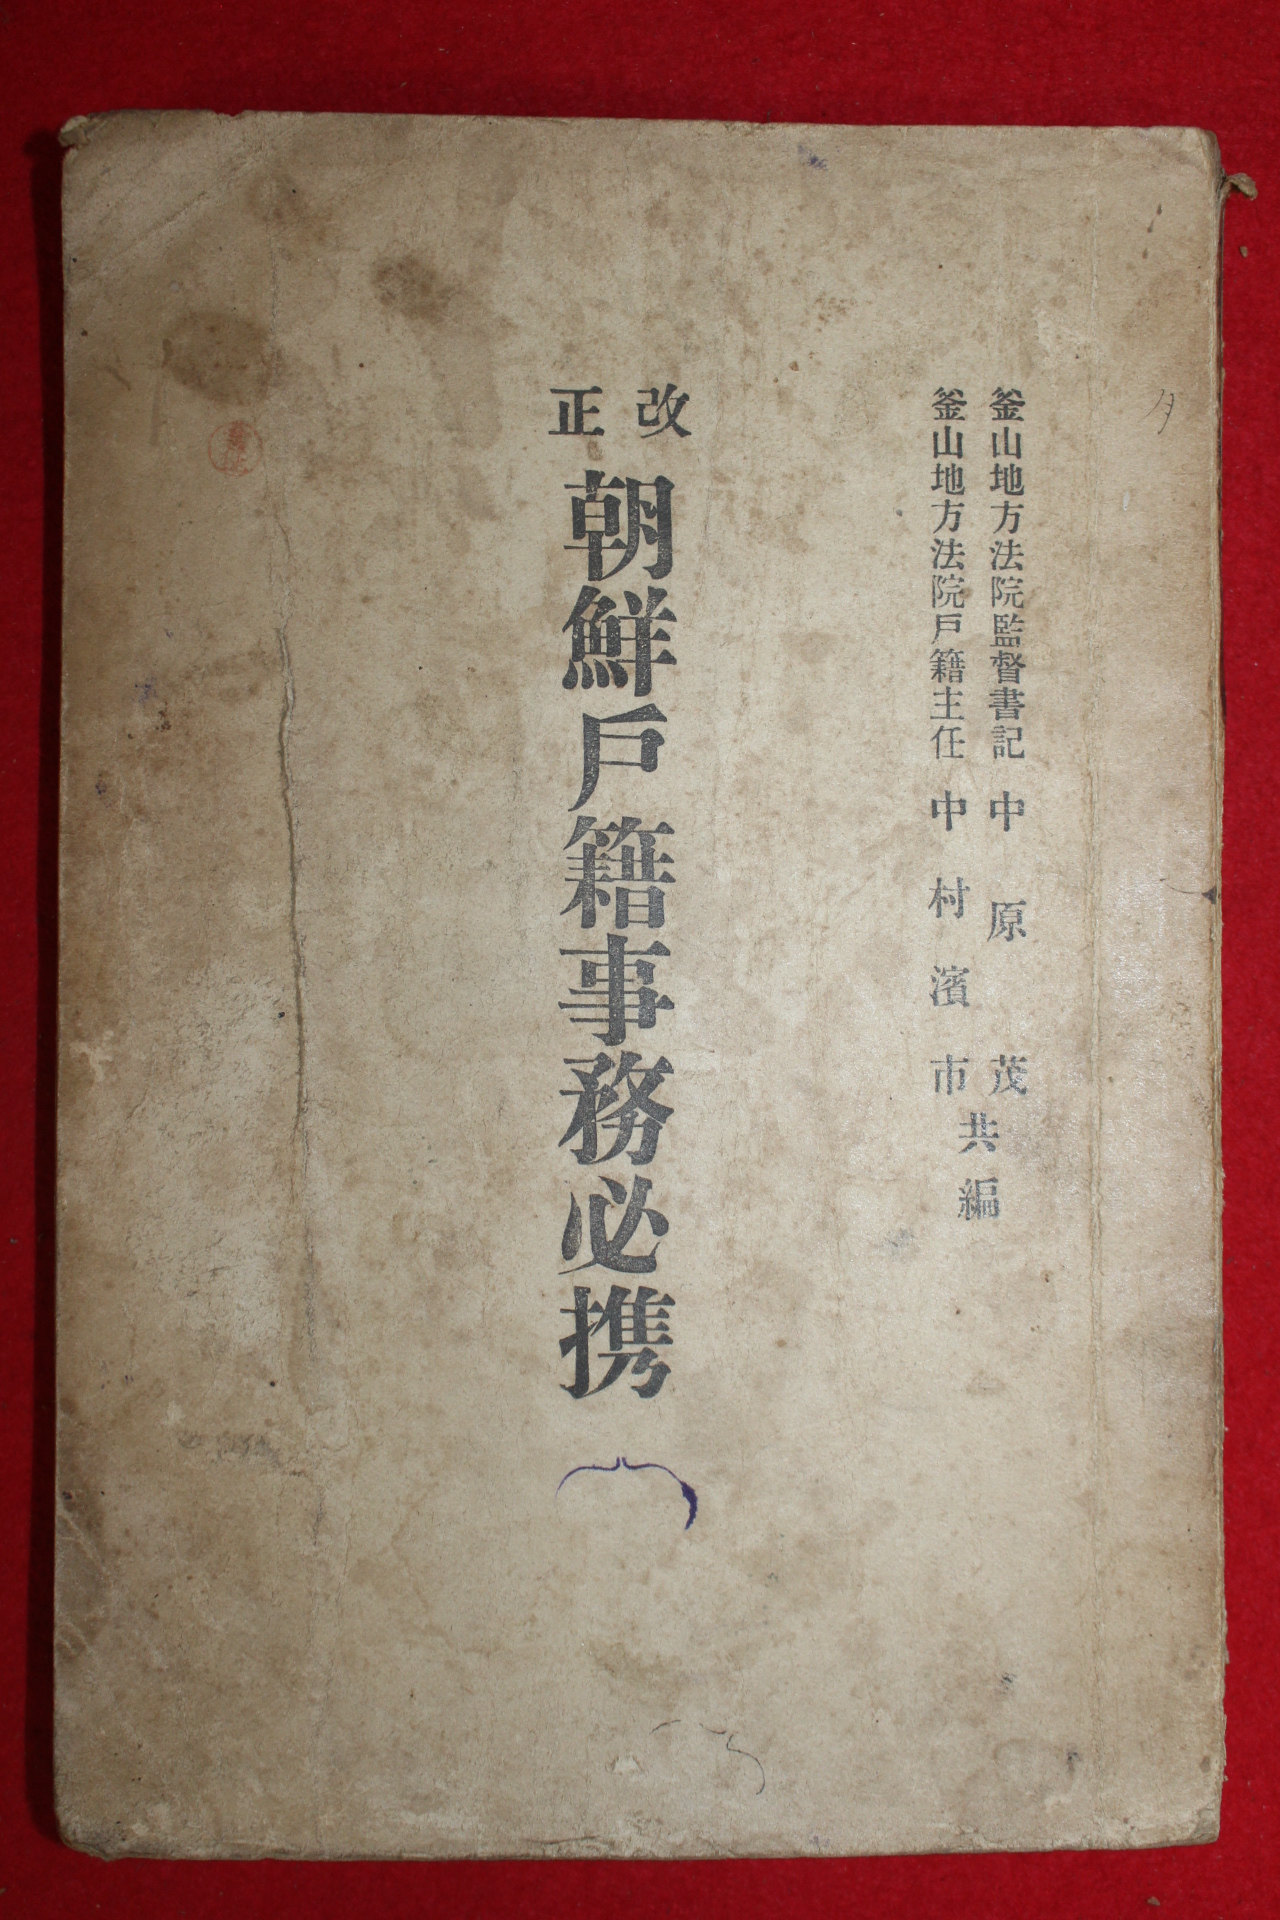 釜山地方法院監督書記 中原茂
釜山地方法院戶籍主任 中村濱市
共編
改正
朝鮮戶籍事務必携